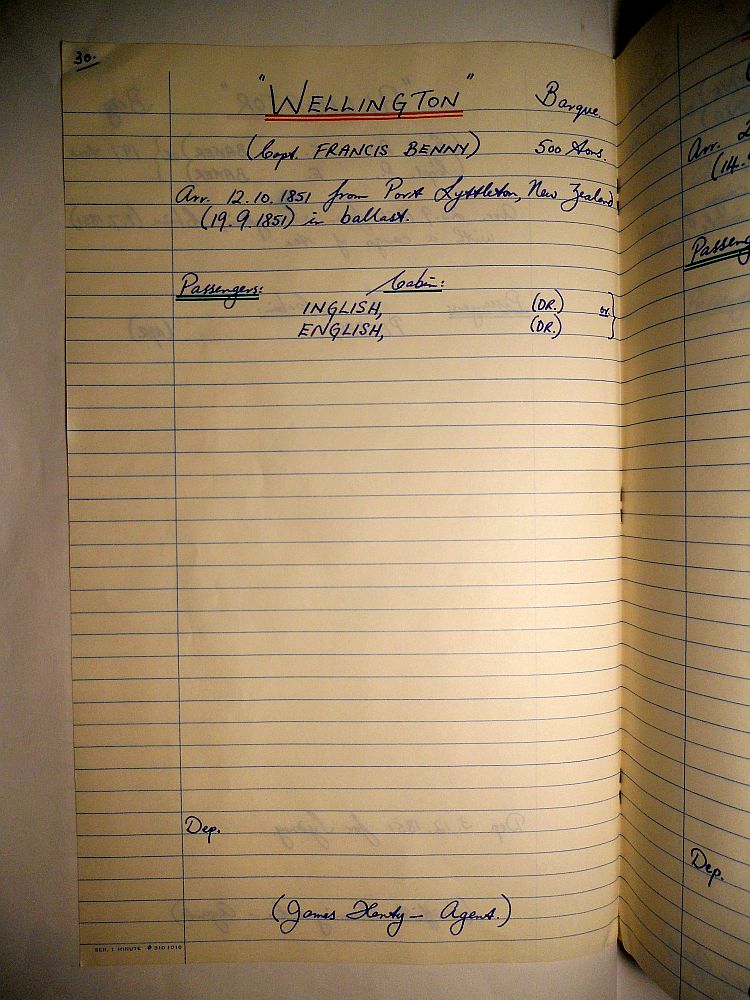 30.
"WELLINGTON" Barque.
(Capt. FRANCIS BENNY) 500 tons.
Arr. 12.10.1851 from Port Lyttleton, New Zealand
(19.9.1851) in ballast.
Passengers: Cabin:
INGLISH, (DR.) or
ENGLISH, (DR.)
Dep.
(James Henty - Agent.)
Arr. 2
(14.
Passeng
Dep.